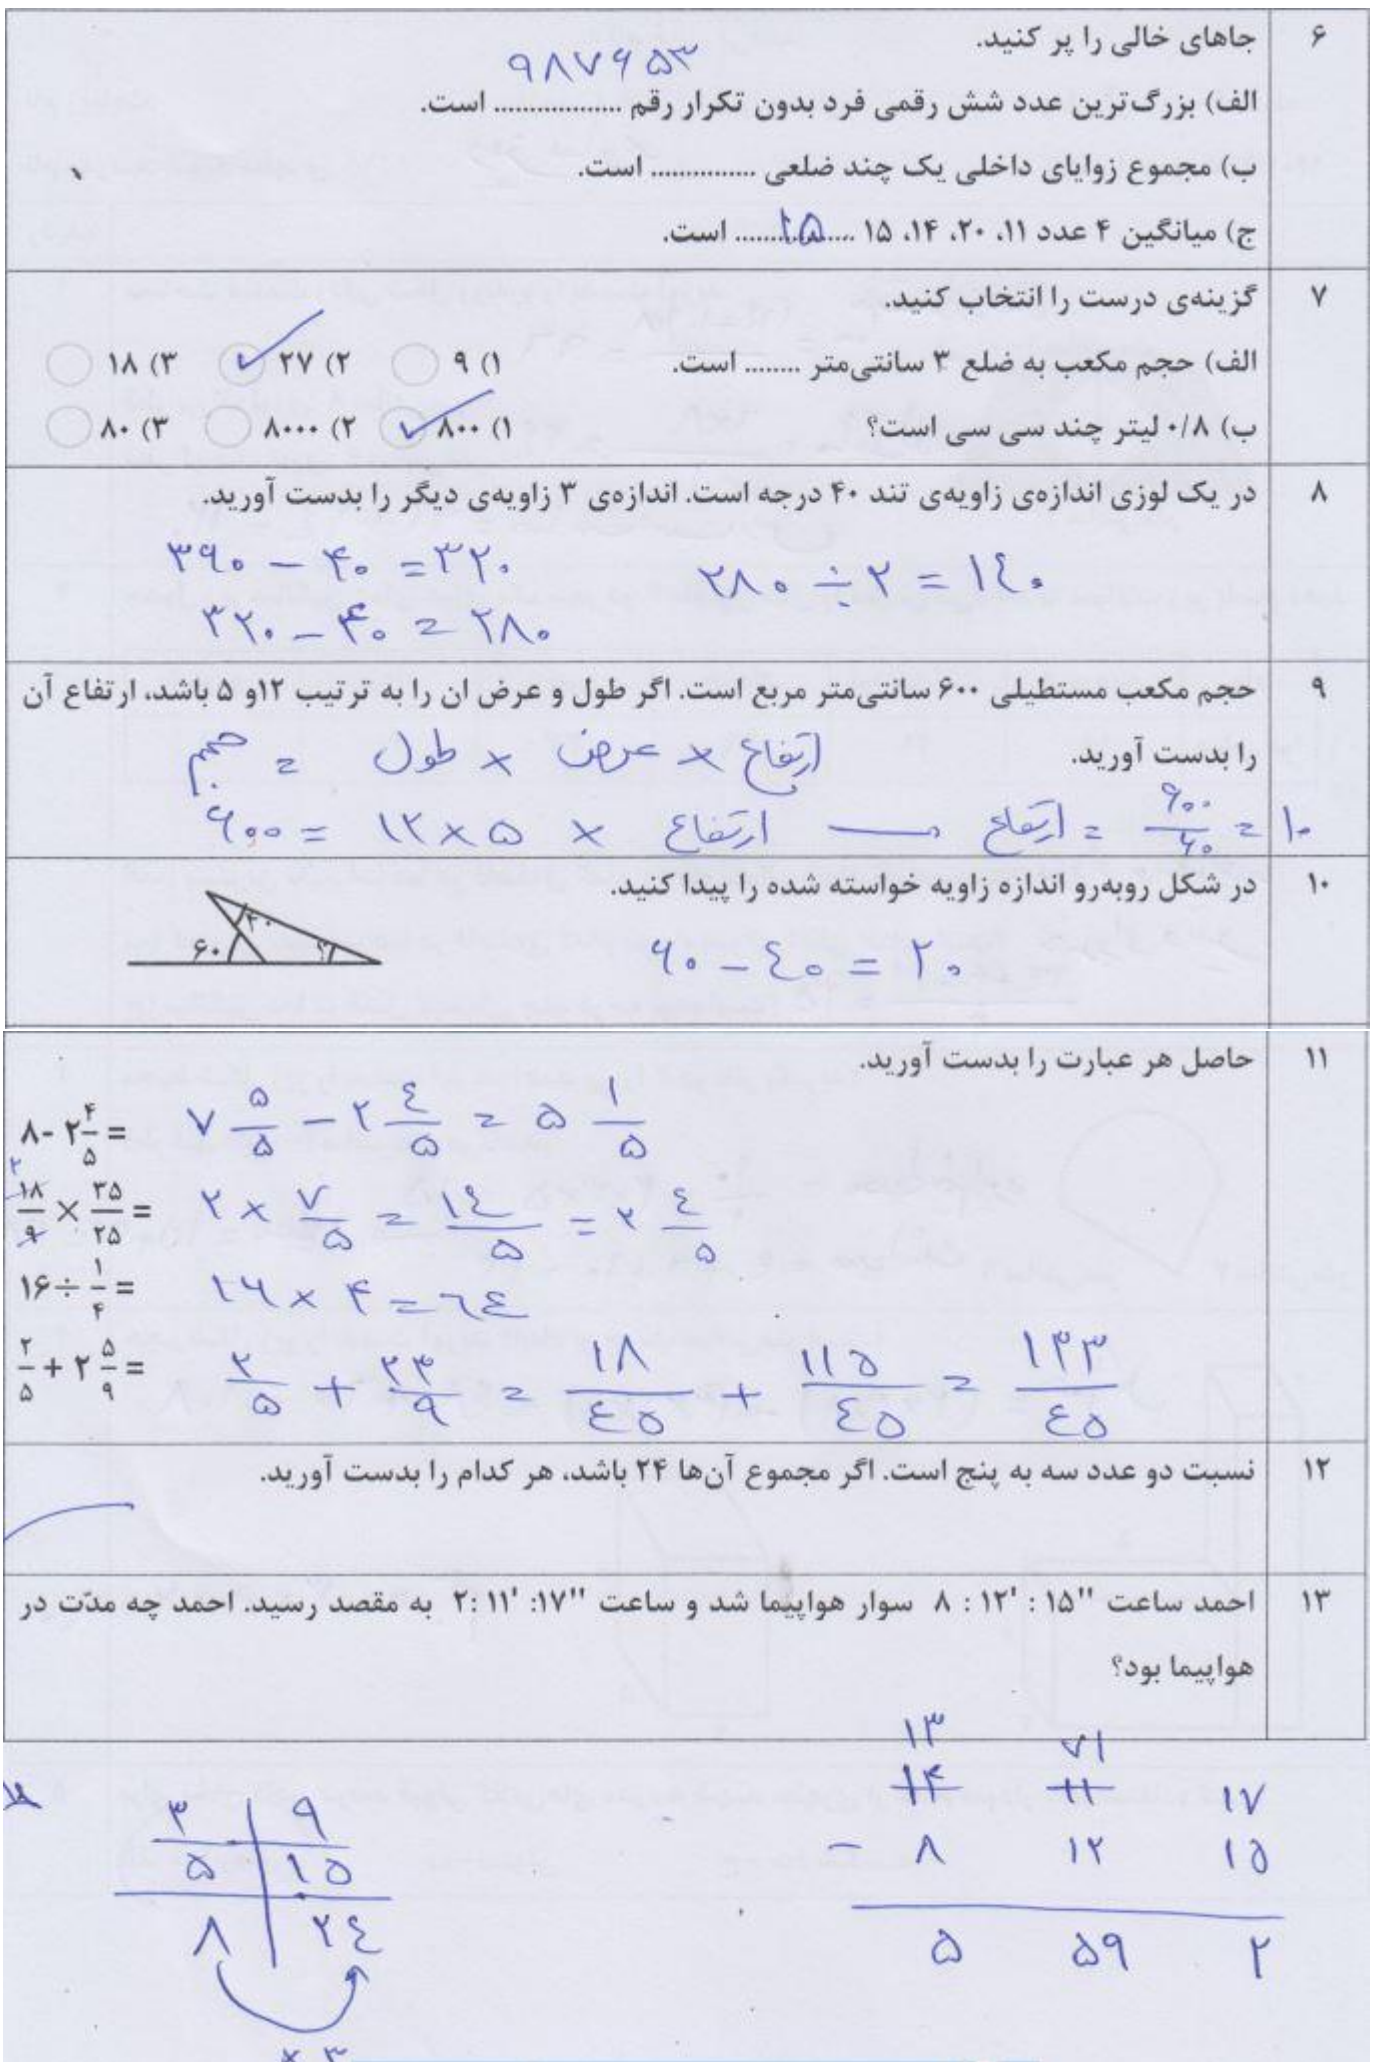 ۶ جاهای خالی را پر کنید.
۹۸۷۶۵۳
الف) بزرگ‌ترین عدد شش رقمی فرد بدون تکرار رقم .................. است.
ب) مجموع زوایای داخلی یک چند ضلعی ............... است.
ج) میانگین ۴ عدد ۱۱، ۲۰، ۱۴، ۱۵ ......۱۵...... است.
۷ گزینه‌ی درست را انتخاب کنید.
الف) حجم مکعب به ضلع ۳ سانتی‌متر ........ است. ۱) ۹ ۲) ۲۷ ✓ ۳) ۱۸
ب) ۰/۸ لیتر چند سی سی است؟ ۱) ۸۰۰ ✓ ۲) ۸۰۰۰ ۳) ۸۰
۸ در یک لوزی اندازه‌ی زاویه‌ی تند ۴۰ درجه است. اندازه‌ی ۳ زاویه‌ی دیگر را بدست آورید.
۳۶۰ - ۴۰ = ۳۲۰ ۲۸۰ ÷ ۲ = ۱۴۰
۳۲۰ - ۴۰ = ۲۸۰
۹ حجم مکعب مستطیلی ۶۰۰ سانتی‌متر مربع است. اگر طول و عرض ان را به ترتیب ۱۲و ۵ باشد، ارتفاع آن
را بدست آورید.
حجم = طول × عرض × ارتفاع
۶۰۰ = ۱۲ × ۵ × ارتفاع → ارتفاع = ۶۰۰/۶۰ = ۱۰
۱۰ در شکل روبه‌رو اندازه زاویه خواسته شده را پیدا کنید.
۴۰
۶۰ ؟
۶۰ - ۴۰ = ۲۰
۱۱ حاصل هر عبارت را بدست آورید.
۸ - ۲ ۴/۵ = ۷ ۵/۵ - ۲ ۴/۵ = ۵ ۱/۵
۲
۱۸/۹ × ۳۵/۲۵ = ۲ × ۷/۵ = ۱۴/۵ = ۲ ۴/۵
۱۶ ÷ ۱/۴ = ۱۶ × ۴ = ۶۴
۲/۵ + ۲ ۵/۹ = ۲/۵ + ۲۳/۹ = ۱۸/۴۵ + ۱۱۵/۴۵ = ۱۳۳/۴۵
۱۲ نسبت دو عدد سه به پنج است. اگر مجموع آن‌ها ۲۴ باشد، هر کدام را بدست آورید.
۱۳ احمد ساعت ''۱۵ : '۱۲ : ۸ سوار هواپیما شد و ساعت ''۱۷: '۱۱ :۲ به مقصد رسید. احمد چه مدّت در
هواپیما بود؟
۱۳ ۷۱
۱۴ ۱۱ ۱۷
- ۸ ۱۲ ۱۵
۵ ۵۹ ۲
۳ ۹
۵ ۱۵
۸ ۲۴
× ۳